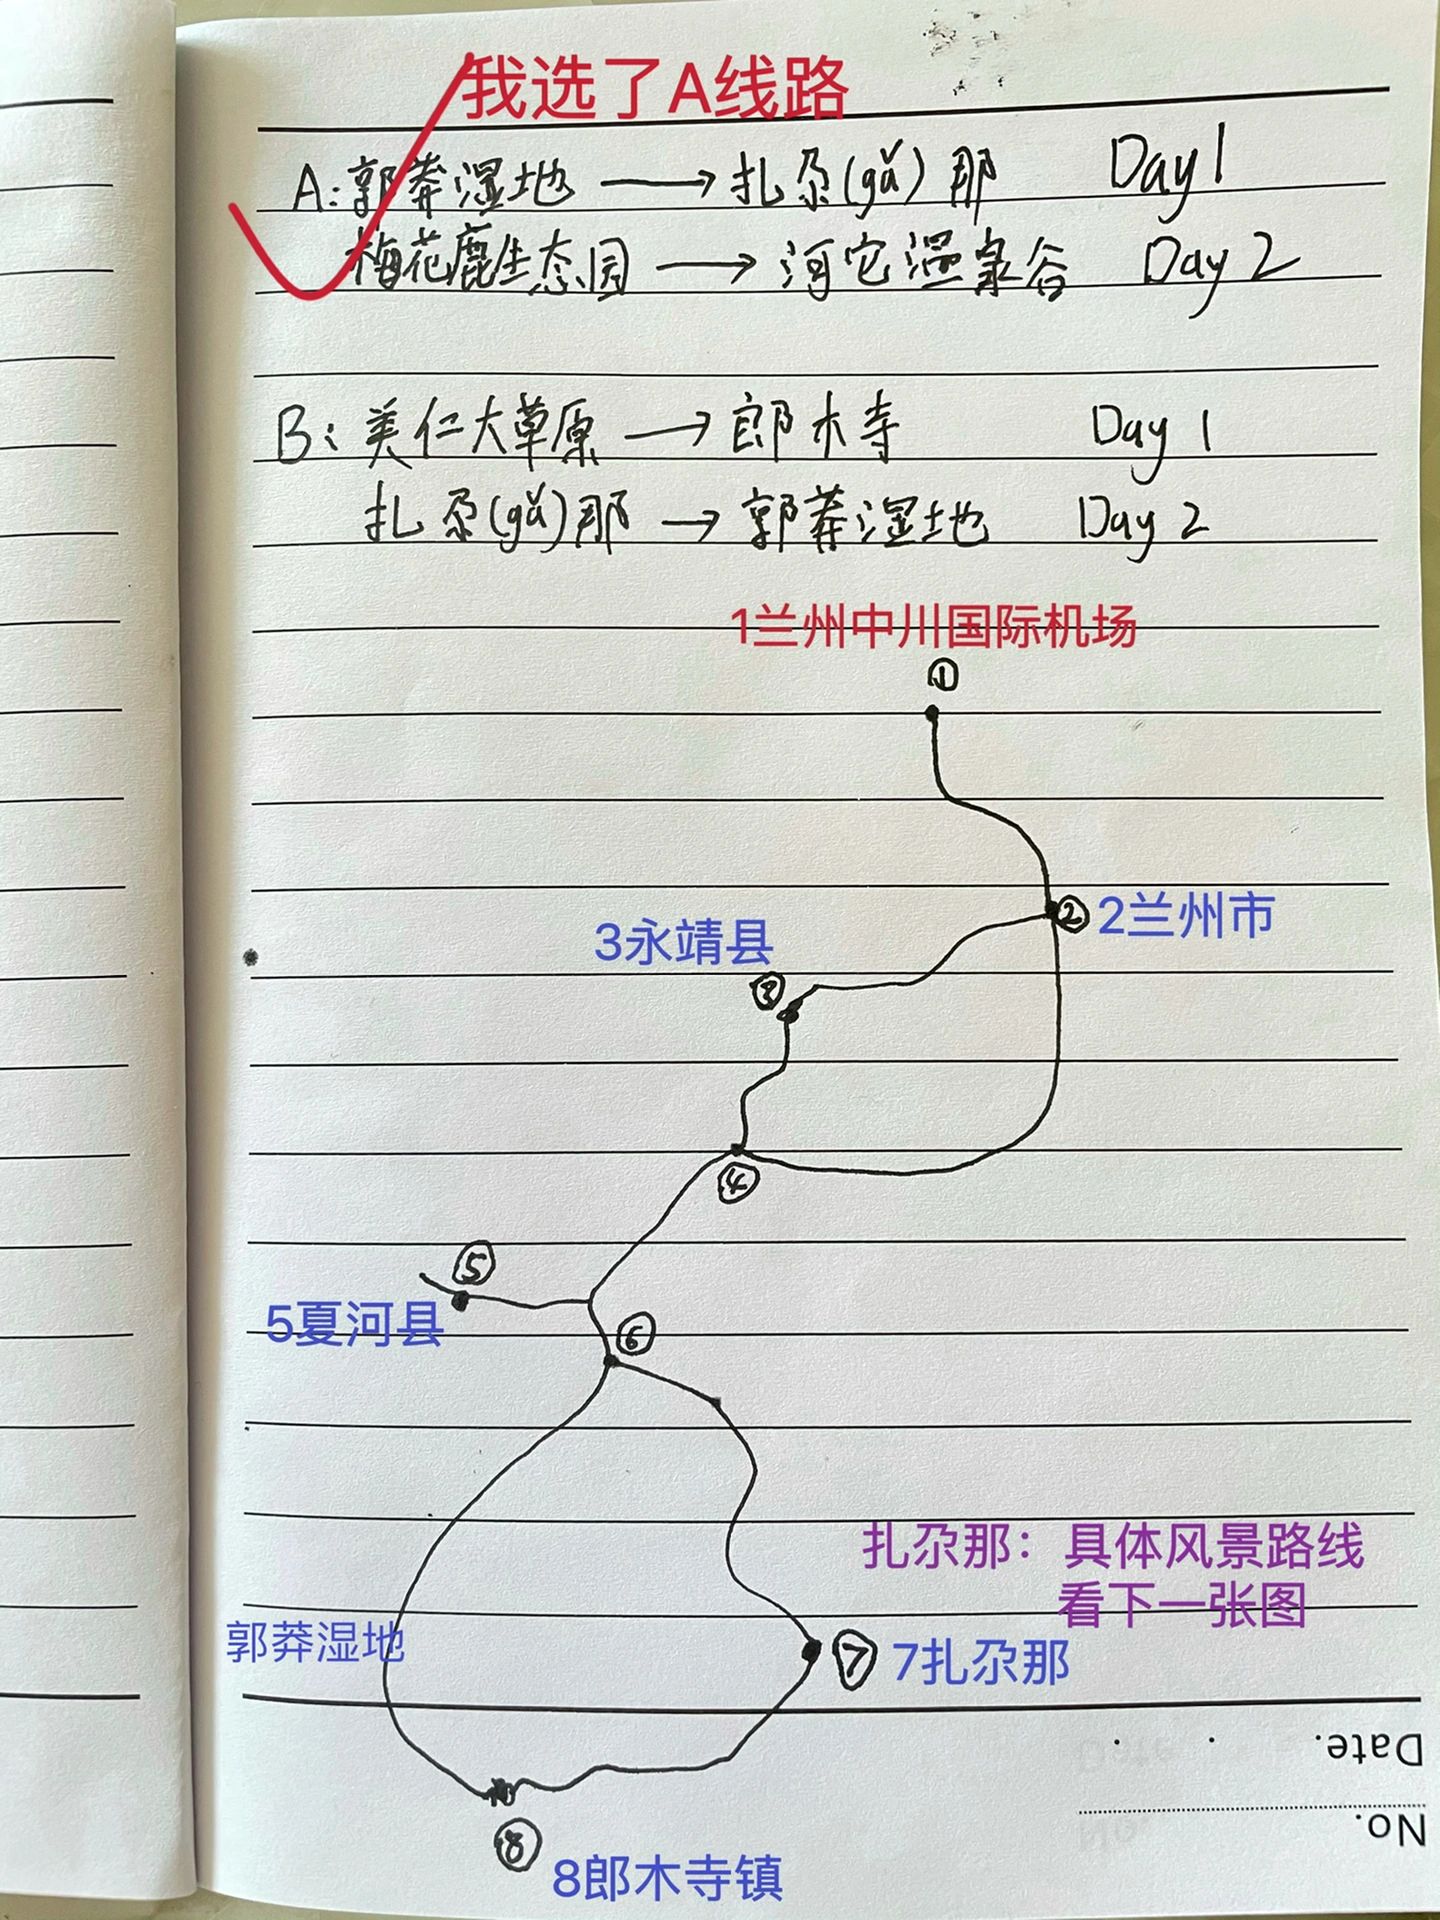 我选了A线路
A:郭莽湿地 → 扎尕(gǎ)那 Day1
梅花鹿生态园 → 河它温泉谷 Day 2
B:美仁大草原 → 郎木寺 Day 1
扎尕(gǎ)那 → 郭莽湿地 Day 2
1兰州中川国际机场
①
② 2兰州市
3永靖县
③
④
⑤
5夏河县
⑥
扎尕那：具体风景路线
看下一张图
郭莽湿地
⑦ 7扎尕那
⑧
8郎木寺镇
Date. . .
No.